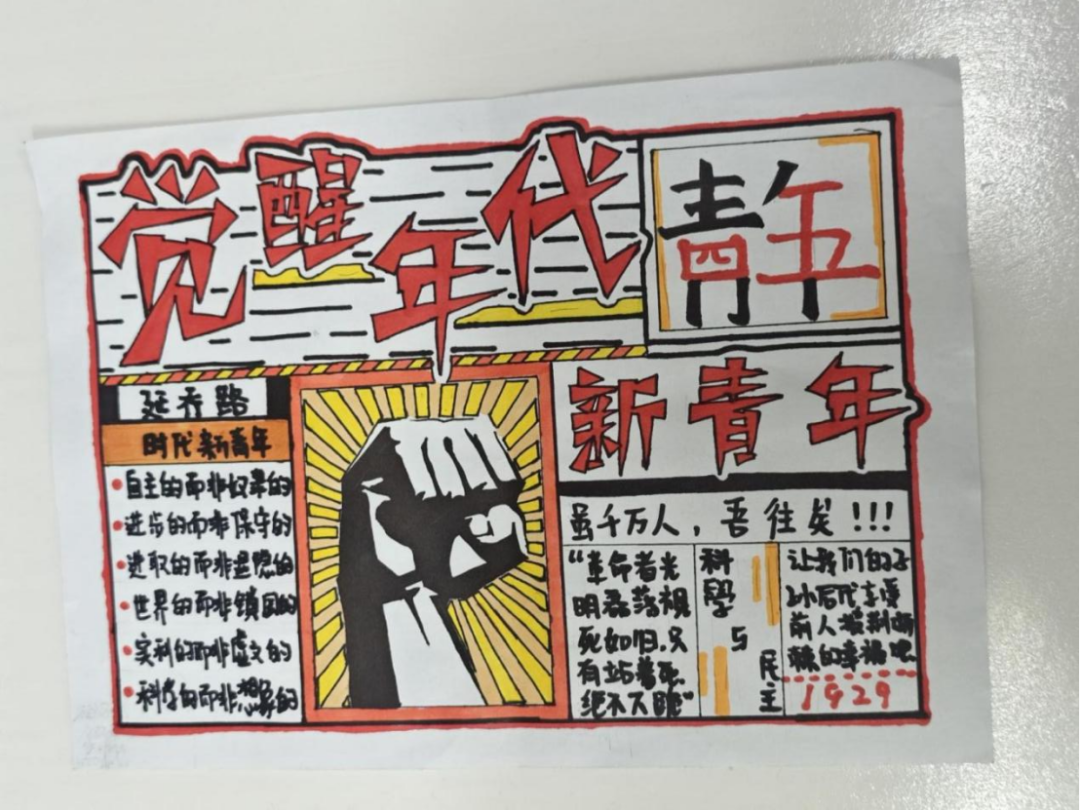 觉醒年代
青年
四五
新青年
延乔路
时代新青年
自主的而非奴隶的
进步的而非保守的
进取的而非退隐的
世界的而非锁国的
实利的而非虚文的
科学的而非想象的
虽千万人，吾往矣!!!
“革命者光
明磊落视
死如归，只
有站着死
绝不下跪”
科学与
民主
让我们的子
孙后代享受
前人披荆斩
棘的幸福吧
1929